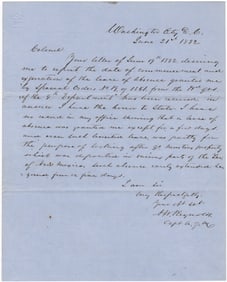 Washington City D.C.
June 21st 1852
Colonel
Your letter of June 19th 1852 desiring
me to report the date of commencement and
expiration of the leave of absence granted me
by Special Orders No of 1851 from the Hd Qrs
of the 9th Department has been received. In
answer I have the honor to state I have
no record in my office showing that a leave of
absence was granted me except for a few days
and even that leave was partly for
the purpose of looking after Qr Masters property
which was deposited in various parts of the Ter.
of New Mexico such absence rarely extended be-
yond four or five days.
I am Sir
Very Respectfully
Your Obt Svt
A. W. Reynolds
Capt A. Q. M.